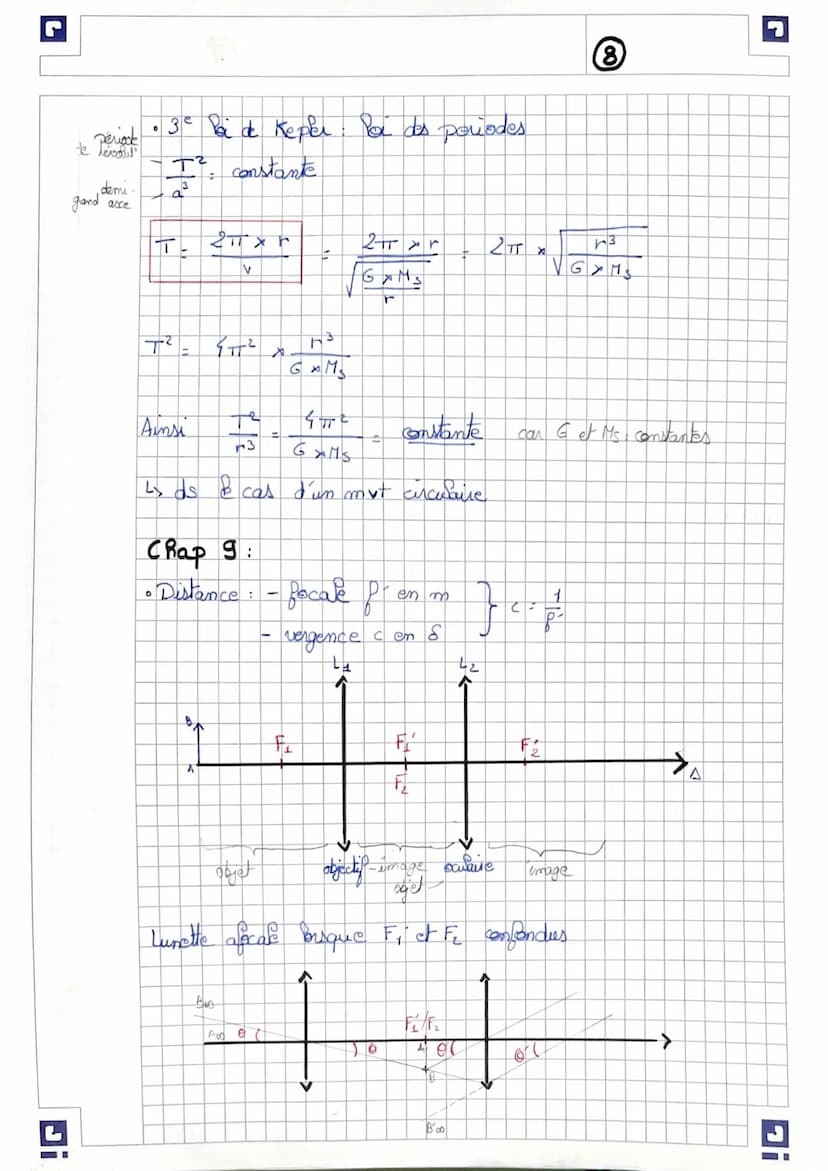 8
• 3e loi de Kepler : loi des périodes
période de révolut°
T² / a³ = constante
demi-grand axe
T = 2π × r / v = 2π × r / √(G × Ms / r) = 2π × √(r³ / G × Ms)
T² = 4π² × r³ / G × Ms
Ainsi T² / r³ = 4π² / G × Ms = constante car G et Ms : constantes
↳ ds le cas d'un mvt circulaire
Chap 9 :
• Distance : - focale f' en m } c = 1 / f'
- vergence c en δ
L1 L2
B
F1 F1' F2'
A F2 Δ
objet objectif - image oculaire image
objet
Lunette afocale lorsque F1' et F2 confondues
B∞ F1'/F2
A∞ θ θ A1 θ' θ'
B1
B'∞